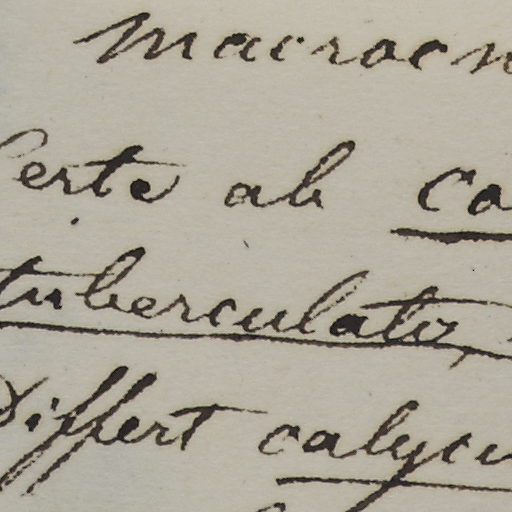 macrocn
Certe ab Ca
tuberculato,
Differt calycu